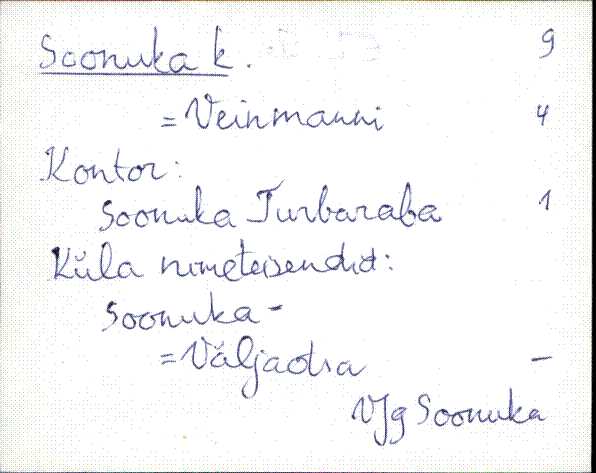 Soonuka k. 9
= Veinmanni 4
Kontor:
Soonuka Turbaraba 1
Küla nimeteisendid:
Soonuka -
= Väljaotsa -
VJg Soonuka